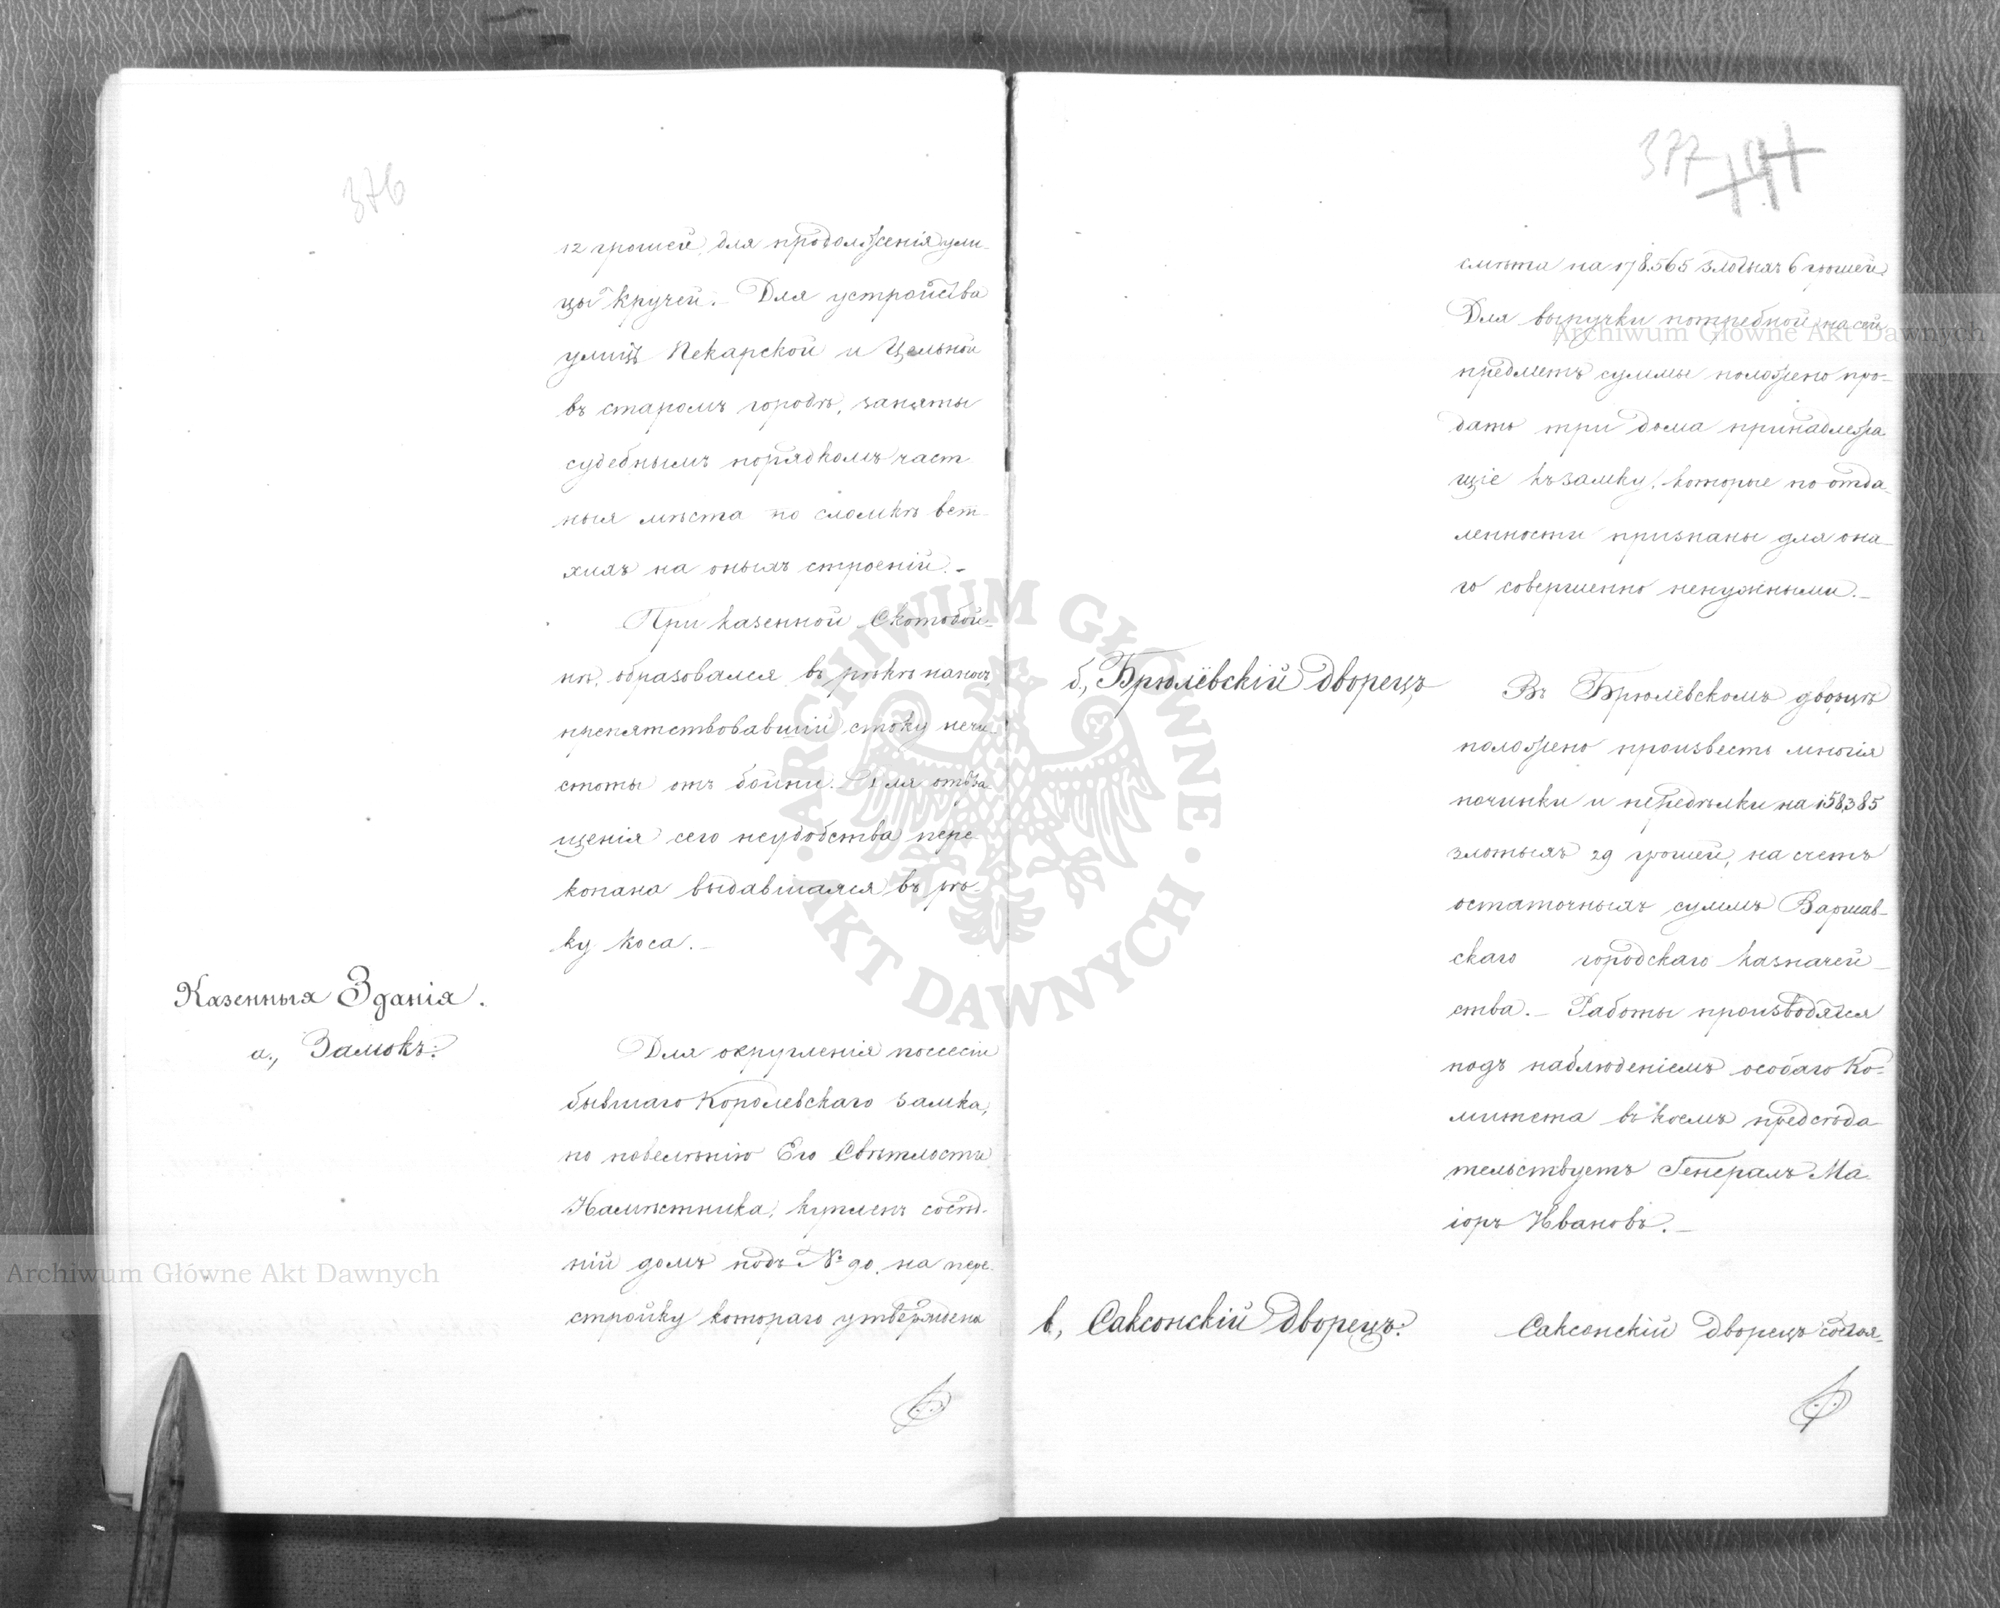 376
12 грошей, для продолженія ули-
цы Кручей. – Для устройства
улицъ Пекарской и Цельной
въ старомъ городѣ, заняты
судебнымъ порядкомъ част-
ныя мѣста по сломкѣ вет-
хихъ на оныхъ строеній. –
При казенной Скотобой-
нѣ, образовался въ рѣкѣ наносъ,
препятствовавшій стоку нечи-
стоты отъ бойни. – Для отвра-
щенія сего неудобства пере-
копана выдавшаяся въ рѣ-
ку коса. –
Казенныя Зданія.
а., Замокъ.
Для округленія поссесіи
бывшаго Королевскаго замка,
по повелѣнію Его Свѣтлости
Намѣстника, купленъ сосѣд-
ній домъ подъ № 90, на пере-
стройку котораго утверждена
377
смѣта на 178.565 злотыхъ 6 грошей.
Для выручки потребной на сей
предметъ суммы положено про-
дать три дома принадлежа-
щіе къ замку, которые по отда-
ленности признаны для она-
го совершенно ненужными. –
б., Брюлёвскій дворецъ,
Въ Брюлёвскомъ дворцѣ
положено произвесть многія
починки и передѣлки на 158,385
злотыхъ 29 грошей, на счетъ
остаточныхъ суммъ Варшав-
скаго городскаго казначей-
ства. – Работы производятся
подъ наблюденіемъ особаго Ко-
митета въ коемъ предсѣда-
тельствуетъ Генералъ-Ма-
іоръ Ивановъ. –
в, Саксонскій дворецъ.
Саксонскій дворецъ состоя-
Archiwum Główne Akt Dawnych
Archiwum Główne Akt Dawnych
· ARCHIWUM GŁÓWNE · AKT DAWNYCH